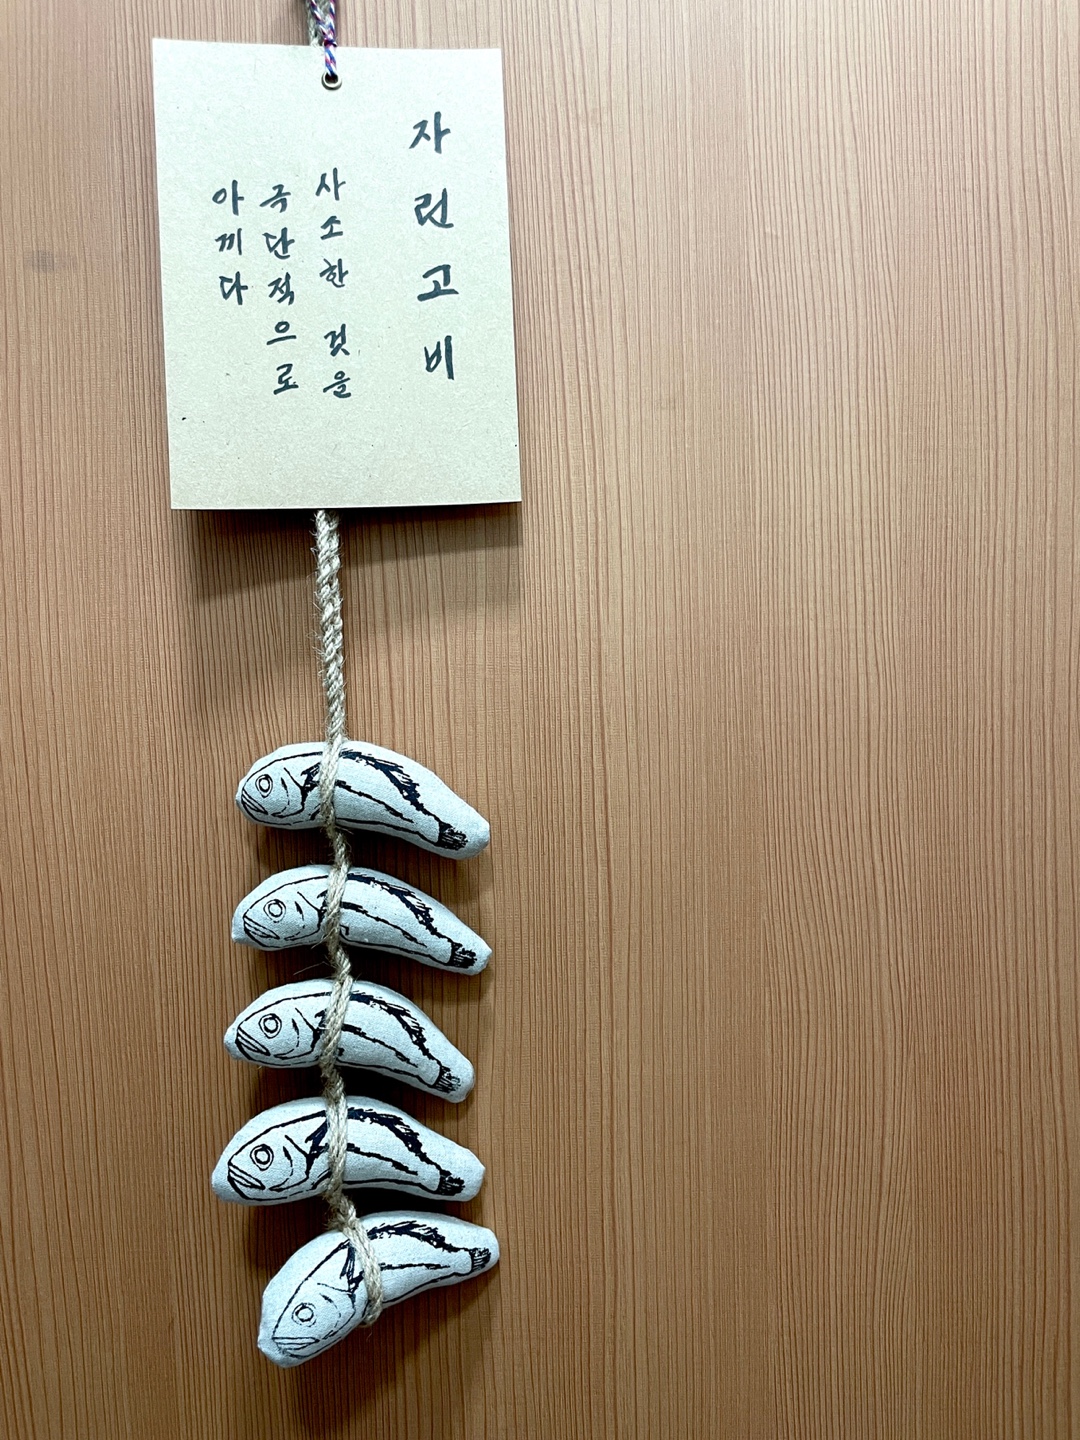 자린고비
사소한 것을
극단적으로
아끼다